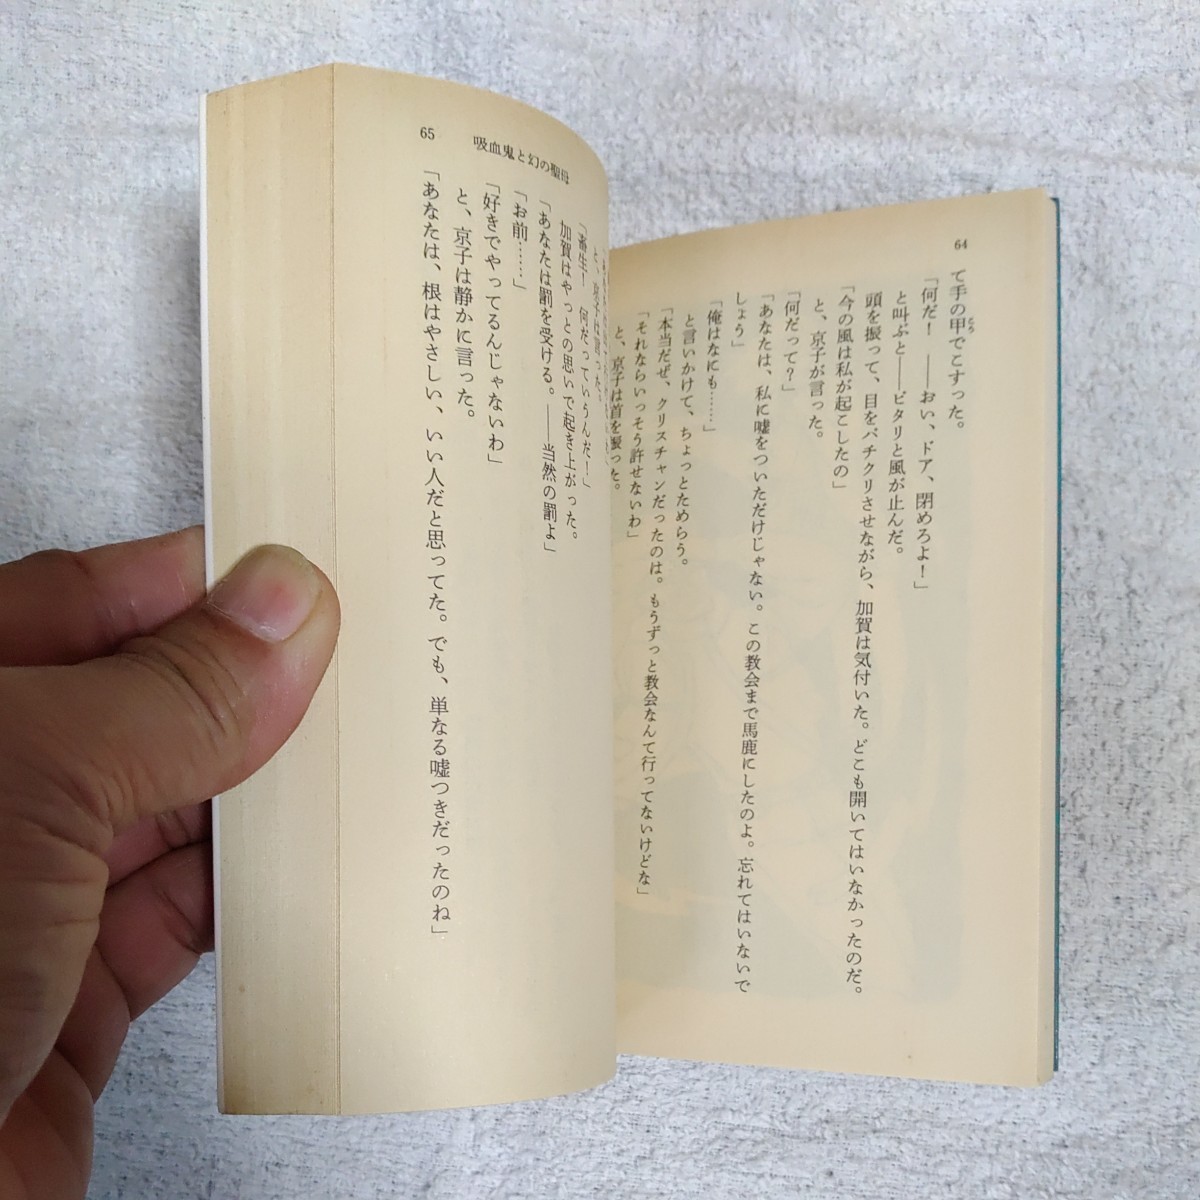 64
て手の甲でこすった。
こう
「何だ！　――おい、ドア、閉めろよ！」
と叫ぶと――ピタリと風が止んだ。
頭を振って、目をパチクリさせながら、加賀は気付いた。どこも開いてはいなかったのだ。
「今の風は私が起こしたの」
と、京子が言った。
「何だって？」
「あなたは、私に嘘をついただけじゃない。この教会まで馬鹿にしたのよ。忘れてはいないで
しょう」
「俺はなにも……」
と言いかけて、ちょっとためらう。
「本当だぜ、クリスチャンだったのは。もうずっと教会なんて行ってないけどな」
「それならいっそう許せないわ」
と、京子は首を振った。
65
吸血鬼と幻の聖母
と、京子は言った。
「畜生！　何だっていうんだ！」
加賀はやっとの思いで起き上がった。
「あなたは罰を受ける。――当然の罰よ」
「お前……」
「好きでやってるんじゃないわ」
と、京子は静かに言った。
「あなたは、根はやさしい、いい人だと思ってた。でも、単なる嘘つきだったのね」